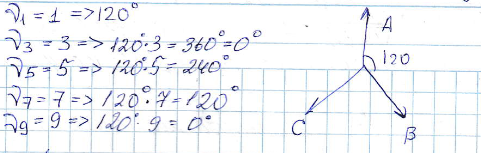 ν₁ = 1 => 120°
ν₃ = 3 => 120°·3 = 360° = 0°
ν₅ = 5 => 120°·5 = 240°
ν₇ = 7 => 120°·7 = 120°
ν₉ = 9 => 120°·9 = 0°
A
120
C
B